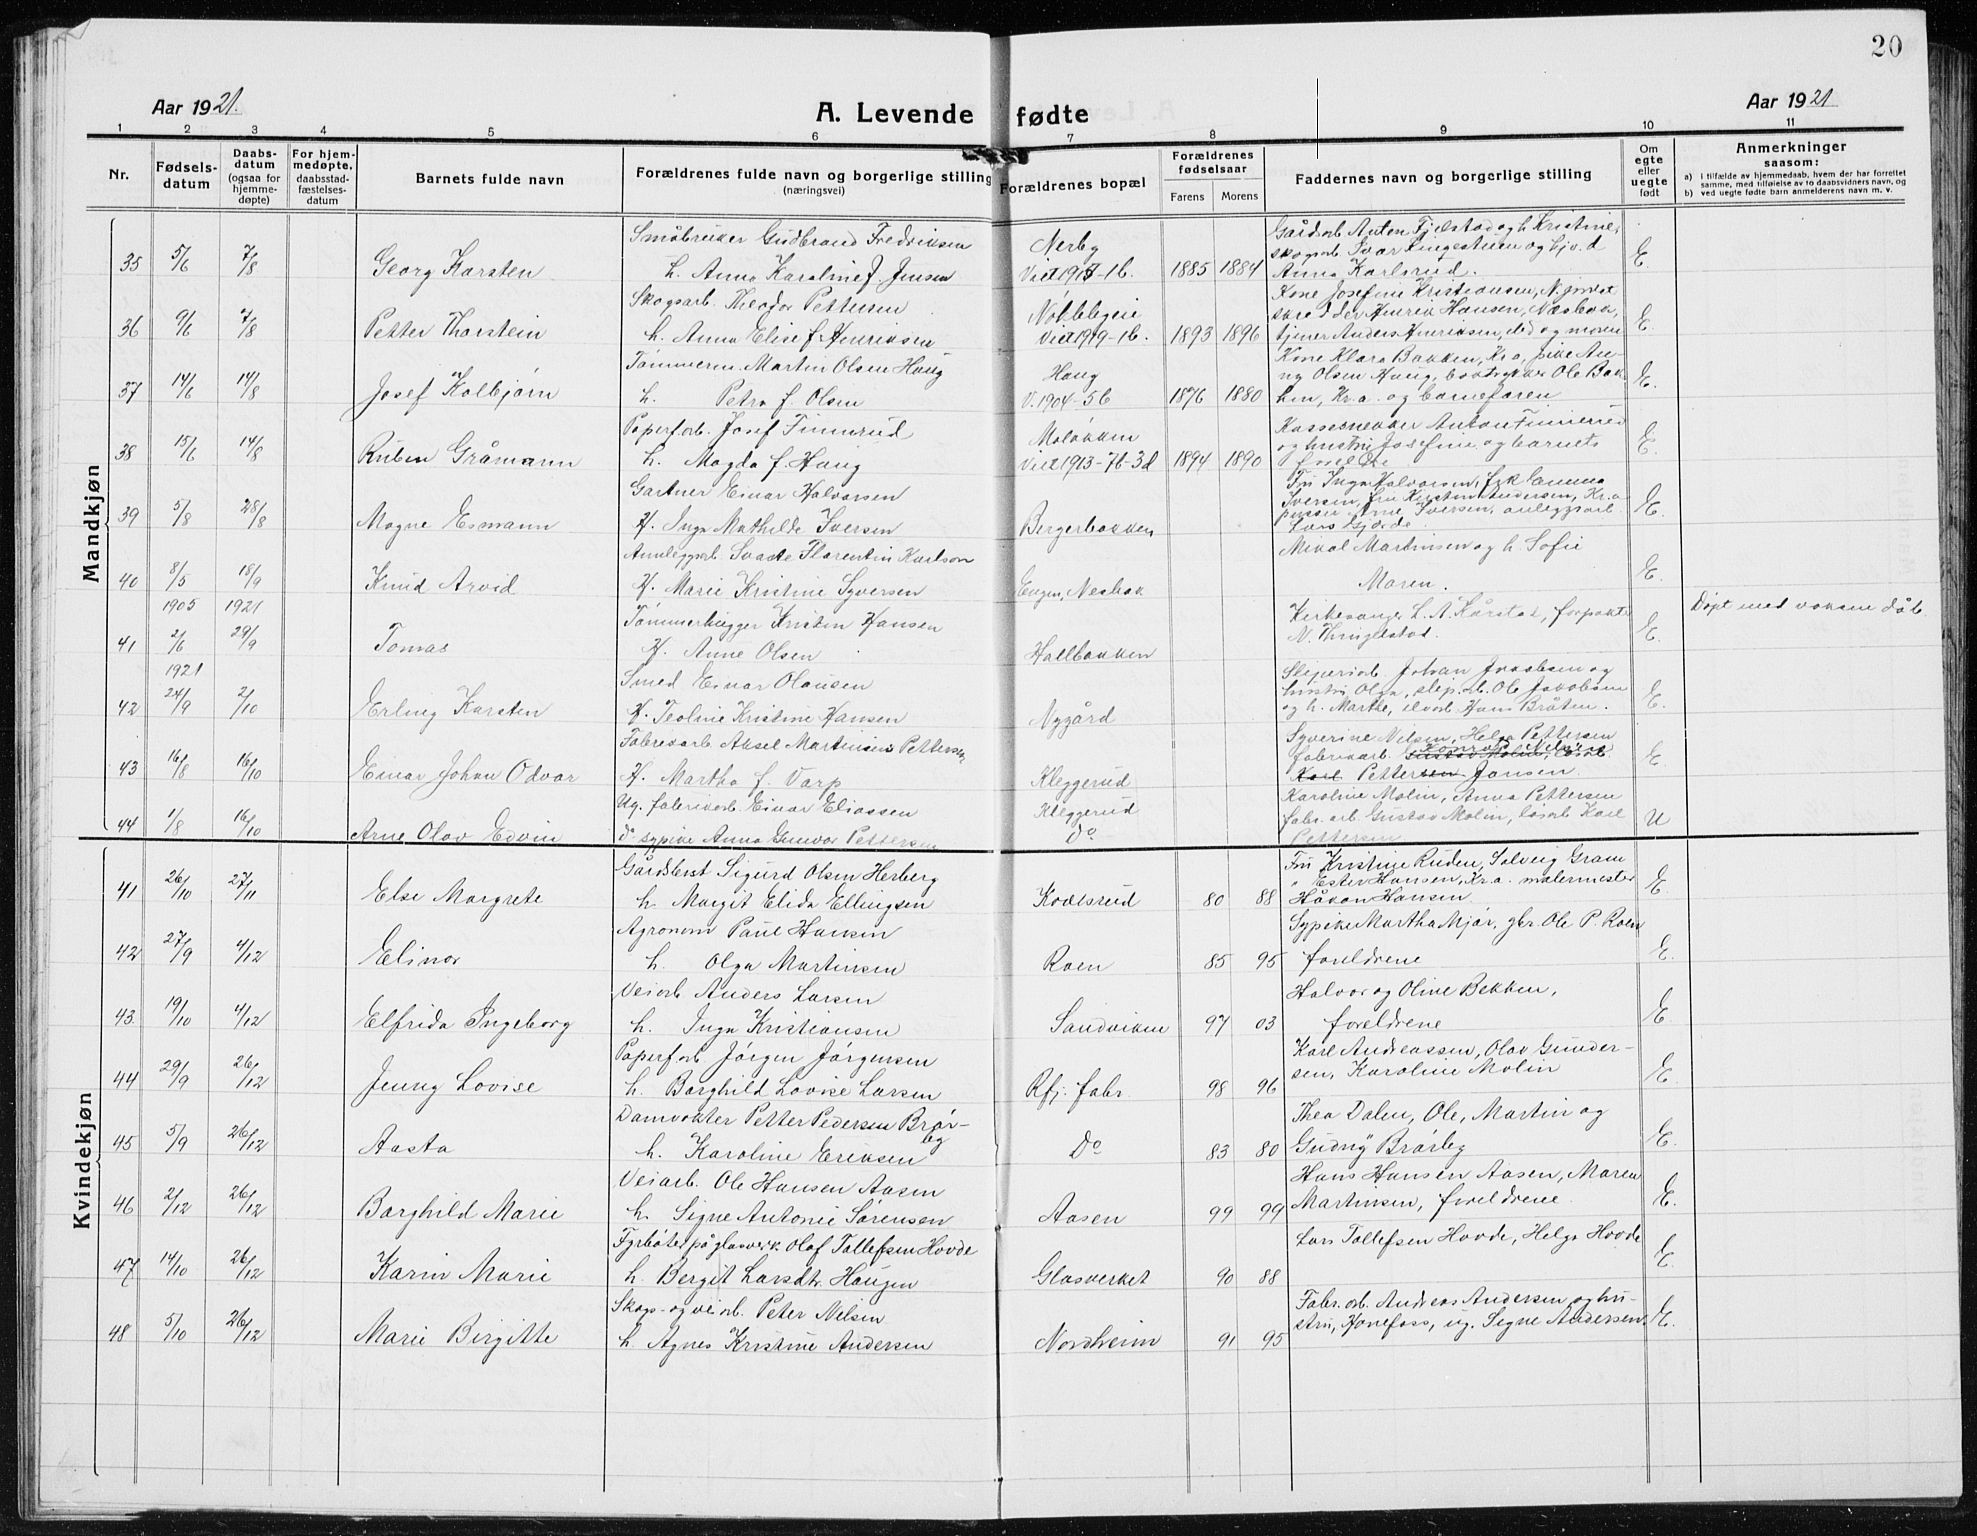 20
Aar 1921.
A. Levende fødte
Aar 1921
1 2 3 4 5 6 7 8 9 10 11
Nr.
Fødsels-
datum
Daabs-
datum
(ogsaa for
hjemme-
døpte)
For hjem-
medøpte,
daabsstad-
fæstelses-
datum
Barnets fulde navn
Forældrenes fulde navn og borgerlige stilling
(næringsvei)
Forældrenes bopæl
Forældrenes
fødselsaar
Farens Morens
Faddernes navn og borgerlige stilling
Om
egte
eller
uegte
født
Anmerkninger
saasom:
a) i tilfælde av hjemmedaab, hvem der har forrettet
samme, med tilføielse av to daabsvidners navn, og
b) ved uegte fødte barn anmelderens navn m. v.
Mandkjøn
35 5/6 7/8 Georg Karsten
Småbruker Gudbrand Fredriksen
h. Anna Karoline f. Jensen
Nerby
1885 1884
Gårdarb Anton Fjelstad og h Kristine,
Anna Karlsrud.
E.
36 9/6 7/8 Petter Thorstein
Skogsarb. Theodor Pettersen
h. Anna Elise f Henriksen
Viet 1919-16. 1893 1896
Kone Josefine Kristiansen,
Henrik Hansen, Nesbak,
tjener Anders Henriksen, ded og moren
E.
37 14/6 14/8 Josef Kolbjørn
Tømmerm. Martin Olsen Haug
h. Petra f. Olsen
Haug
V. 1904-56 1876 1880
Kone Klara Bakken, Kr.a, pike An-
ny Olsen Haug, Ole Bak-
ken, Kr.a. og barnefaren
E.
38 15/6 14/8 Ruben Gråmann
Paperf.arb. Josef Finnerud
h. Magda f. Haug
Moløkken
Viet 1913-76-3d 1894 1890
Kassesnekker Anton Finnerud
og hustru Josefine og barnets
foreldre
E.
39 5/8 28/8 Magne Esmann
Gartner Einar Halvorsen
H. Inga Mathilde Iversen
Bergerbakken
Fru Inga Halvorsen, frk Emma
Iversen, fru Kirsten Andersen, Kr.a
Arne Iversen, anleggsarb.
Lars Gjerde.
E.
40 8/5 18/9 Knud Arvid
Anleggsarb. Svante Florentin Karlson
H. Marie Kristine Syversen
Engen, Nesbak
Mikal Martinsen og h. Sofie
Maren.
E.
1905 1921
41 2/6 29/9 Tomas
Tømmerhugger Kristen Hansen
H. Anne Olsen
Hallbakken
Kirkesanger L. A. Kårstad, forpakter
N. Thinglestad.
E.
Døpt med voksen dåb.
1921
42 24/9 2/10 Erling Karsten
Smed Einar Olausen
H. Teoline Kristine Hansen
Nygård
Sliperiarb. Johan Jakobsen og
hustru Olga, slip.arb. Ole Jakobsen
og h. Marthe, elvarb Hans Bråten.
E.
43 16/8 16/10 Einar Johan Odvar
Fabrikarb. Aksel Martinius Pettersen
H. Martha f. Varp
Kleggerud
Syverine Nelsen, Helga Pettersen
fabrikarb. Gustav Molin,
Konrad Nelsen
Karl Pettersen Jansen.
E
44 1/8 16/10 Arne Olav Edvin
Ug. fabrikarb. Einar Eliassen
do sypike Anna Gunvor Pettersen
Kleggerud
Do
Karoline Molin, Anna Pettersen
fabr. arb Gustav Molin, løsarb Karl
Pettersen
U
Kvindekjøn
41 26/10 27/11 Else Margrete
Gårdbest Sigurd Olsen Herberg
h. Margit Elida Ellingsen
80 88
Fru Kristine Ruden, Solveig Gram
" Ester Hansen, Kr.a. malermester
Håkon Hansen
E.
42 27/9 4/12 Elinor
Agronom Paul Hansen
h. Olga Martinsen
Roen
85 95
Sypike Martha Mjør, gbr. Ole P. Roen
foreldrene
E.
43 19/10 4/12 Elfrida Ingeborg
Veiarb Anders Larsen
h. Inga Kristiansen
Sandviken
97 03
Halvor og Oline Bekken,
foreldrene
E.
44 29/9 26/12 Jenny Lovise
Paperf.arb. Jørgen Jørgensen
h. Borghild Lovise Larsen
Rfj. fabr.
98 96
Karl Andreassen, Olav Gunder-
sen, Karoline Molin
E
45 5/9 26/12 Aasta
Damvokter Petter Pedersen Brør-
by
h. Karoline Eriksen
Do
83 80
Thea Dalen, Ole, Martin og
Gudny Brørby
E.
46 2/12 26/12 Borghild Marie
Veiarb. Ole Hansen Aasen
h. Signe Antonie Sørensen
Aasen
99 99
Hans Hansen Aasen, Maren
Martinsen, foreldrene.
E.
47 14/10 26/12 Karin Marie
Fyrbøter på glasverk Olaf Tollefsen Hovde
h. Bergit Larsdtr. Haugen
Glasverket
90 88
Lars Tollefsen Hovde, Helga Hovde
E.
48 5/10 26/12 Marie Birgitte
Skogs- og veiarb. Peter Nelsen
h. Agnes Kristine Andersen
Nordheim
91 95
Fabr. arb. Andreas Andersen og hu-
stru, Hønefoss, ug. Signe Andersen
E.